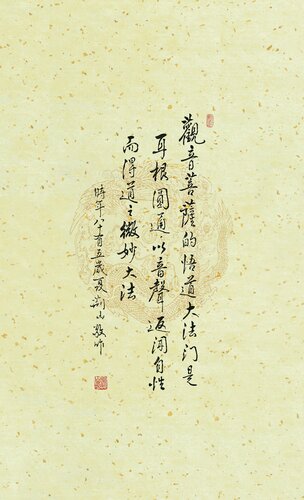 觀音菩薩的悟道大法门是
耳根圆通以音聲返闻自性
而得道之微妙大法
時年八十有五歲夏荆山敬书